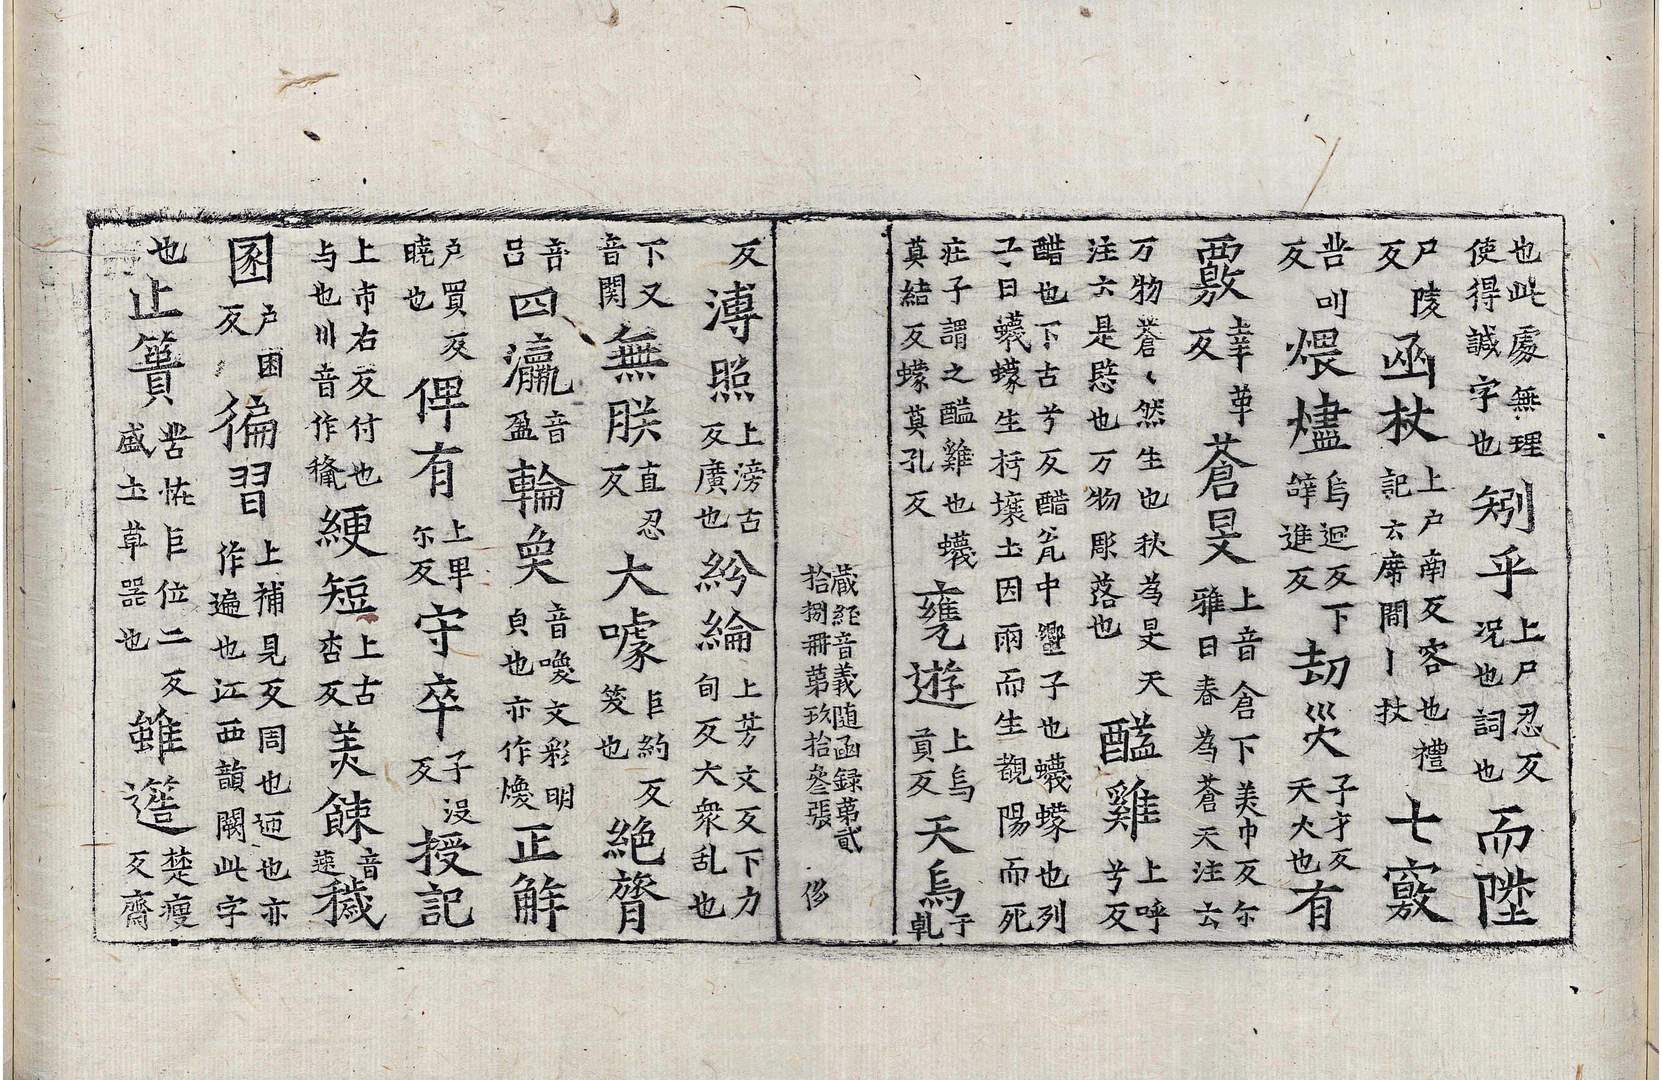 也此處無理使得誠字也矧乎上尸忍反况也詞也而陞
尸陵反凾杖上户南反容也禮記云席間丨扙七竅
苦叫反煨燼上烏迴反下䇦進反刧災子才反天火也有
覈幸革反蒼旻上音倉下美巾反尔雅曰春為蒼天注云
万物蒼〻然生也秋為旻天注云是愍也万物彫落也醯雞上呼兮反
醯也下古兮反醯瓮中蠛子也蠛蠓也列子曰蠛蠓生朽壤土因雨而生覩陽而死
庄子謂之醯雞也蠛莫結反蠓莫孔反甕遊上烏貢反天烏于乹
藏経音義随函録第貳拾捌冊第玖拾叄張 侈
反溥照上滂古反廣也紛綸上芳文反下力旬反大衆乱也
下又音関無朕直忍反大噱巨約反笑也絶膂
音吕四瀛音盈輪奐音喚文彩明皃也亦作煥正觧
户買反曉也俾有上畢尔反守卒子没反授記
上市右反付也与也川音作穐綆短上古杏反羙餗音速穢
圂户困反徧習上補見反周也迊也亦作遍也江西韻闕此字
也止簣苦恠巨位二反盛土草器也雖簉楚瘦反齋